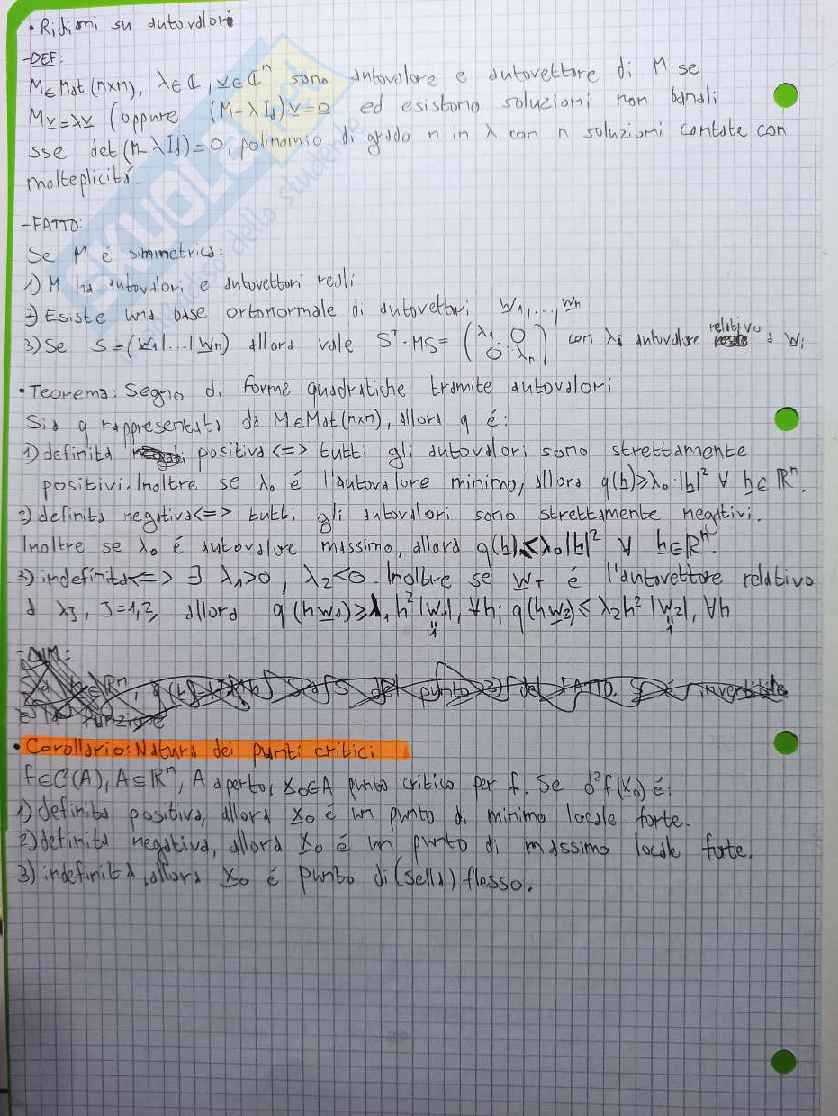 • Richiami su autovalori
-DEF:
M∈Mat(n×n), λ∈ℂ, v∈ℂⁿ sono autovalore e autovettore di M se
Mv=λv (oppure (M-λId)v=0 ed esistono soluzioni non banali
sse det(M-λId)=0, polinomio di grado n in λ con n soluzioni contate con
molteplicitá.
-FATTO:
Se M é simmetrica:
1) M ha autovalori e autovettori reali
2) Esiste una base ortonormale di autovettori w₁,...,wₙ
3) Se S=(w₁|...|wₙ) allora vale Sᵀ·MS= (λ₁ 0 0 λₙ) con λi autovalore relativo a wi
• Teorema: Segno di forme quadratiche tramite autovalori
Sia q rappresentata da M∈Mat(n×n), allora q é:
1) definita positiva <=> tutti gli autovalori sono strettamente
positivi. Inoltre se λ₀ é l'autovalore minimo, allora q(h)≥λ₀·|h|² ∀ h∈ℝⁿ.
2) definita negativa <=> tutti gli autovalori sono strettamente negativi.
Inoltre se λ₀ é autovalore massimo, allora q(h)≤λ₀|h|² ∀ h∈ℝⁿ.
3) indefinita <=> ∃ λ₁>0, λ₂<0. Inoltre se wJ é l'autovettore relativo
a λJ, J=1,2, allora q(hw₁)≥λ₁h²|w₁|, ∀h; q(hw₂)≤λ₂h²|w₂|, ∀h
" 1 " 1
-DIM:
• Corollario: Natura dei punti critici
f∈C²(A), A⊆ℝⁿ, A aperto, x₀∈A punto critico per f. Se d²f(x₀) é:
1) definita positiva, allora x₀ é un punto di minimo locale forte.
2) definita negativa, allora x₀ é un punto di massimo locale forte.
3) indefinita, allora x₀ é punto di (sella) flesso.
SKUOLA.net